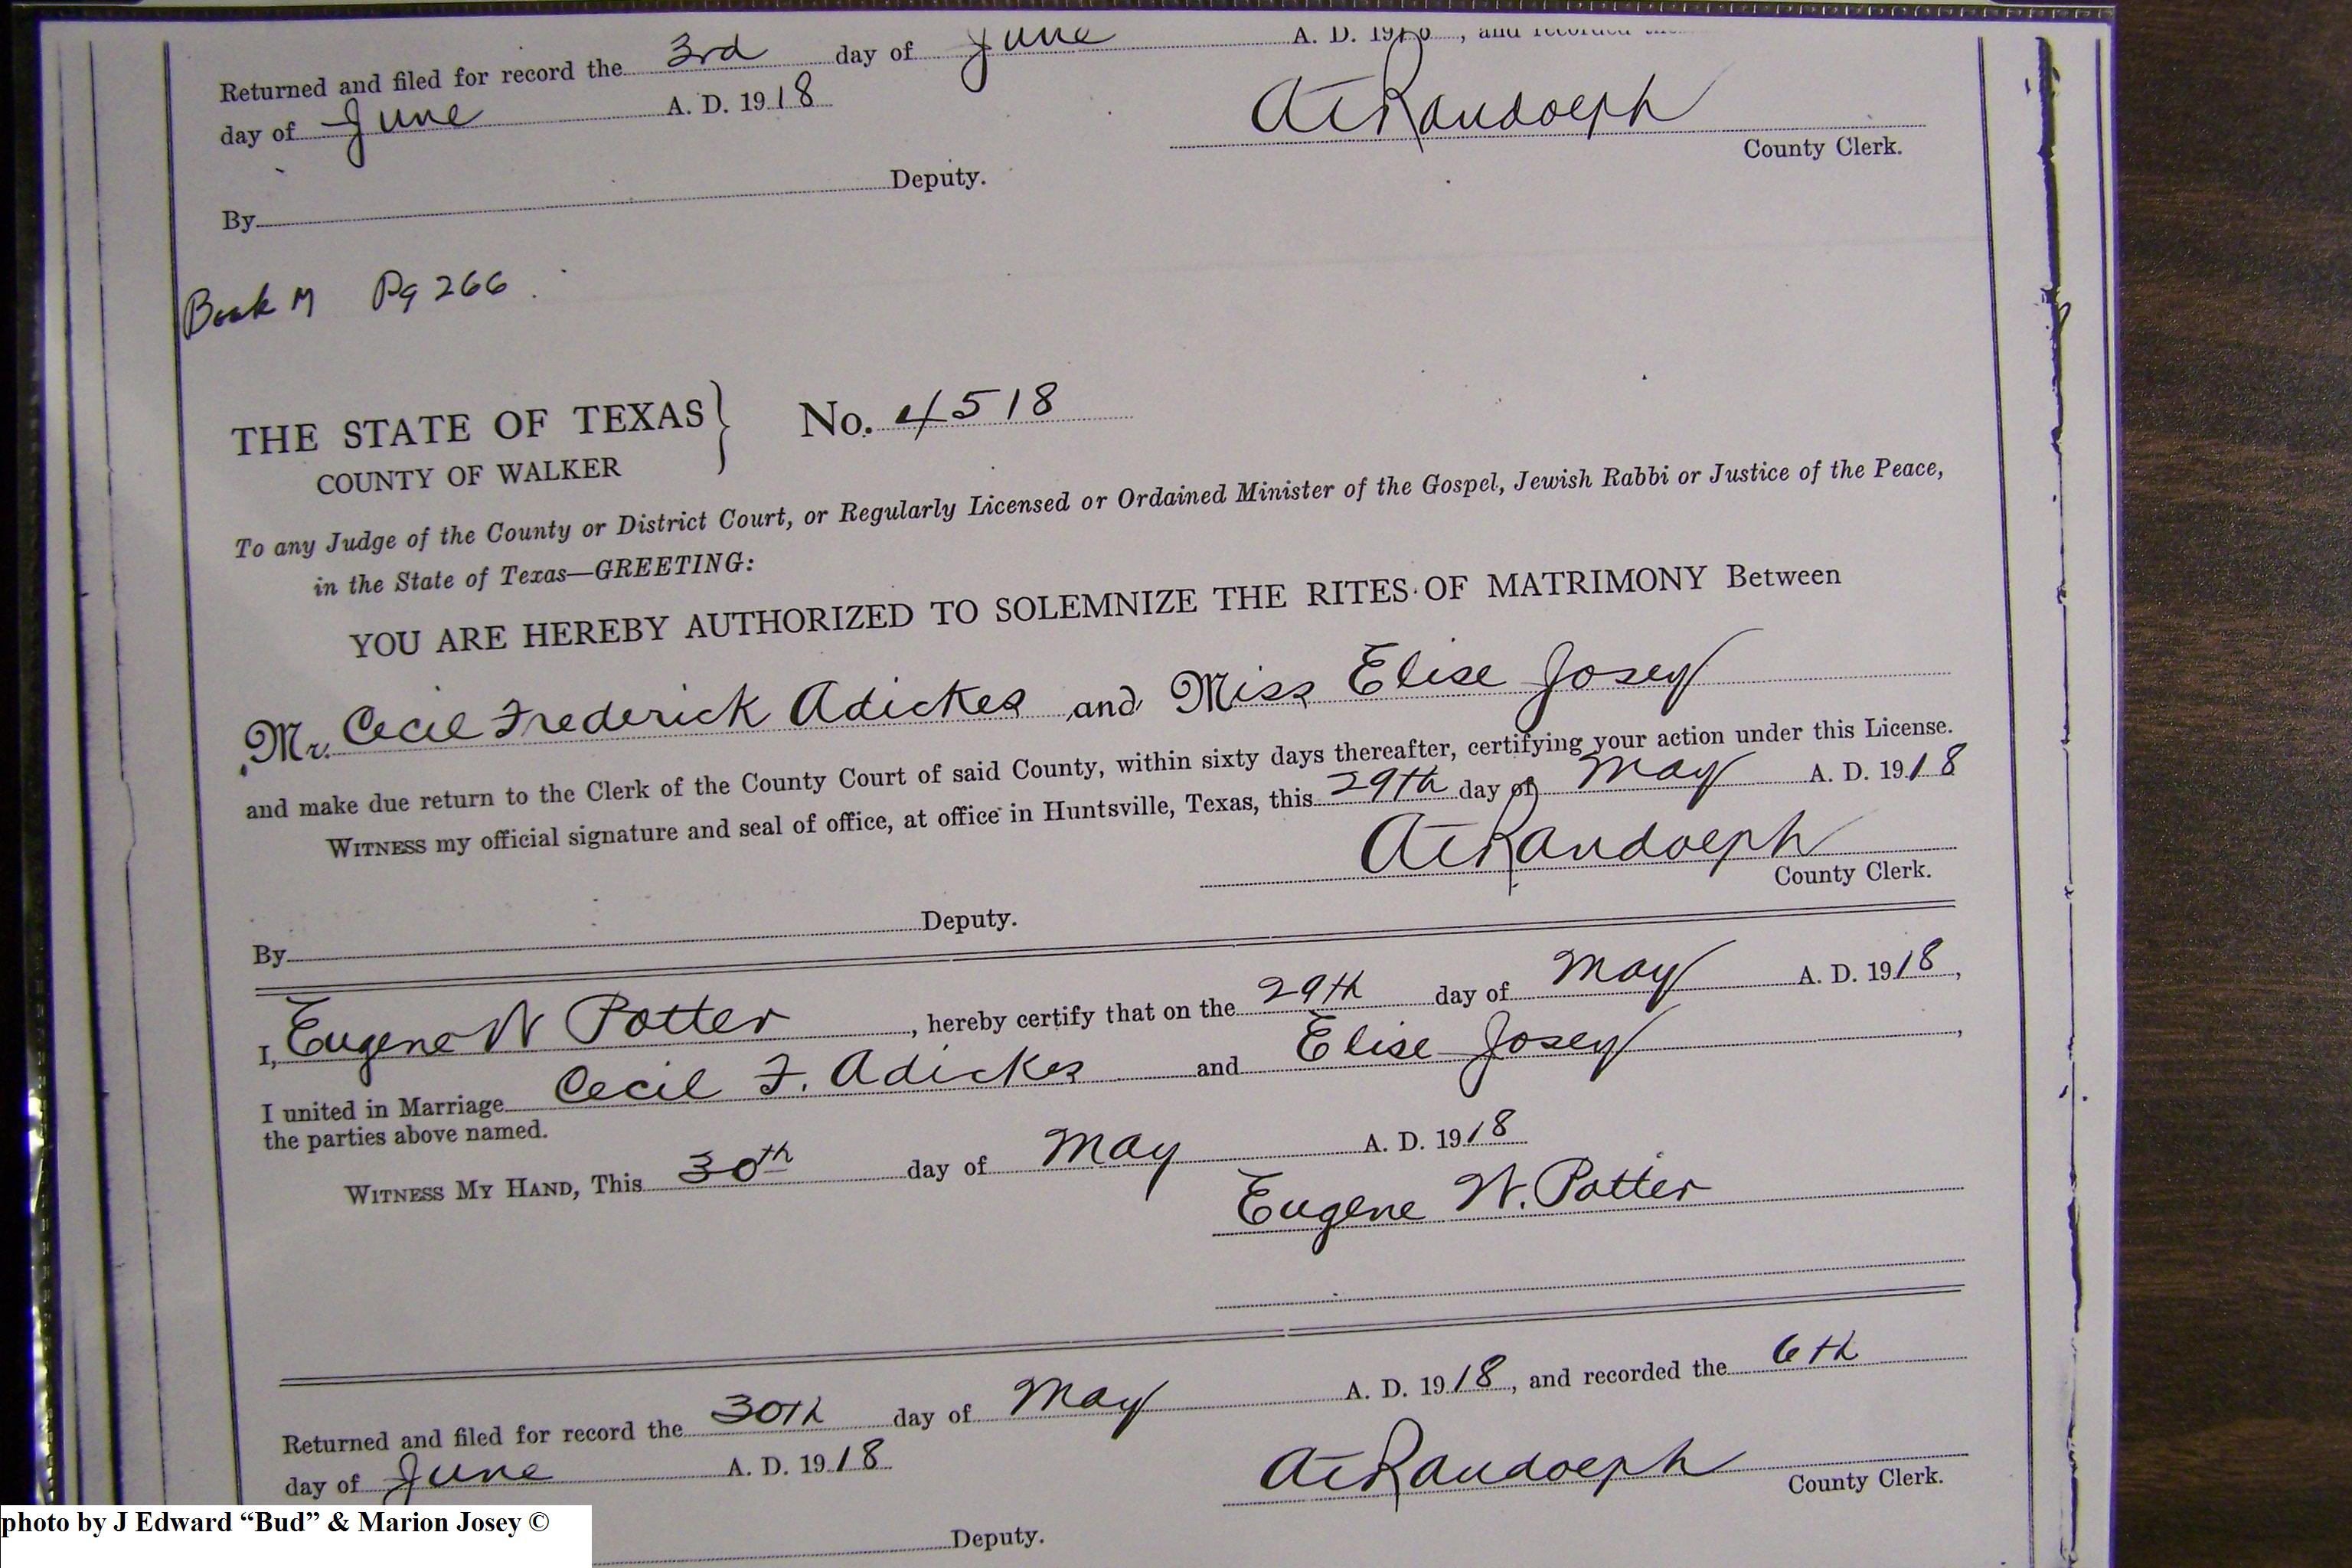 Returned and filed for record the 3rd day of June A. D. 1918, and recorded the
day of June A. D. 1918
AtRandolph
County Clerk.
By Deputy.
Book M Pg 266
THE STATE OF TEXAS } No. 4518
COUNTY OF WALKER
To any Judge of the County or District Court, or Regularly Licensed or Ordained Minister of the Gospel, Jewish Rabbi or Justice of the Peace,
in the State of Texas—GREETING:
YOU ARE HEREBY AUTHORIZED TO SOLEMNIZE THE RITES OF MATRIMONY Between
Mr. Cecil Frederick Adickes and Miss Elise Josey
and make due return to the Clerk of the County Court of said County, within sixty days thereafter, certifying your action under this License.
WITNESS my official signature and seal of office, at office in Huntsville, Texas, this 29th day of May A. D. 1918
AtRandolph
County Clerk.
By Deputy.
I, Eugene W Potter, hereby certify that on the 29th day of May A. D. 1918,
I united in Marriage Cecil F. Adickes and Elise Josey,
the parties above named.
WITNESS MY HAND, This 30th day of May A. D. 1918
Eugene W. Potter
Returned and filed for record the 30th day of May A. D. 1918, and recorded the 6th
day of June A. D. 1918
AtRandolph
County Clerk.
Deputy.
photo by J Edward “Bud” & Marion Josey ©